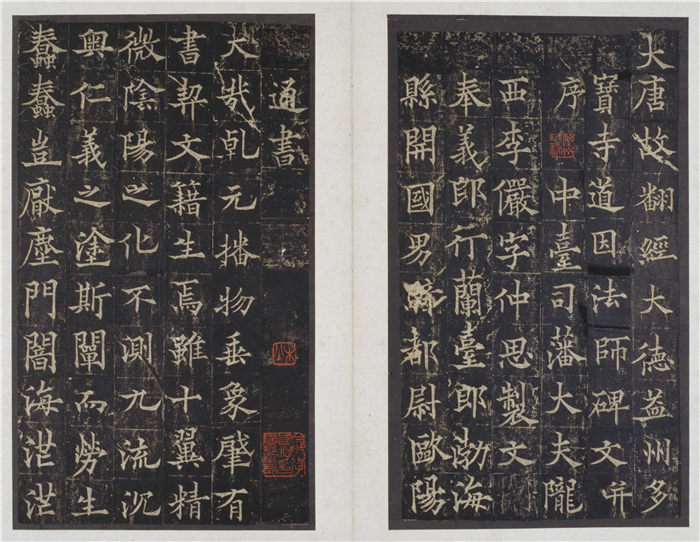 大唐故翻經大德益州多
寶寺道因法師碑文并
序 中臺司藩大夫隴
西李儼字仲思製文
奉義郎行蘭臺郎渤海
縣開國男騎都尉歐陽
通書
大哉乹元播物垂象肇有
書契文籍生焉雖十翼精
微陰陽之化不測九流沉
奧仁義之塗斯闡而勞生
蠢蠢豈厭塵門闇海茫茫